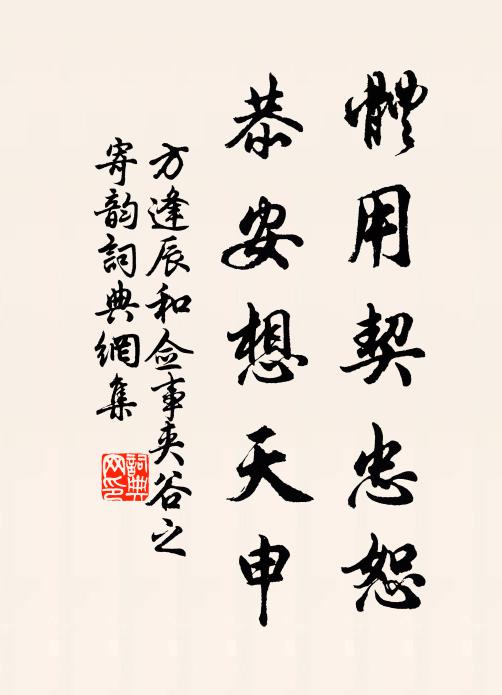 體用契忠恕
恭安想天申
方逢辰和僉事夾谷之
寄韵詞典網集
詞典網印